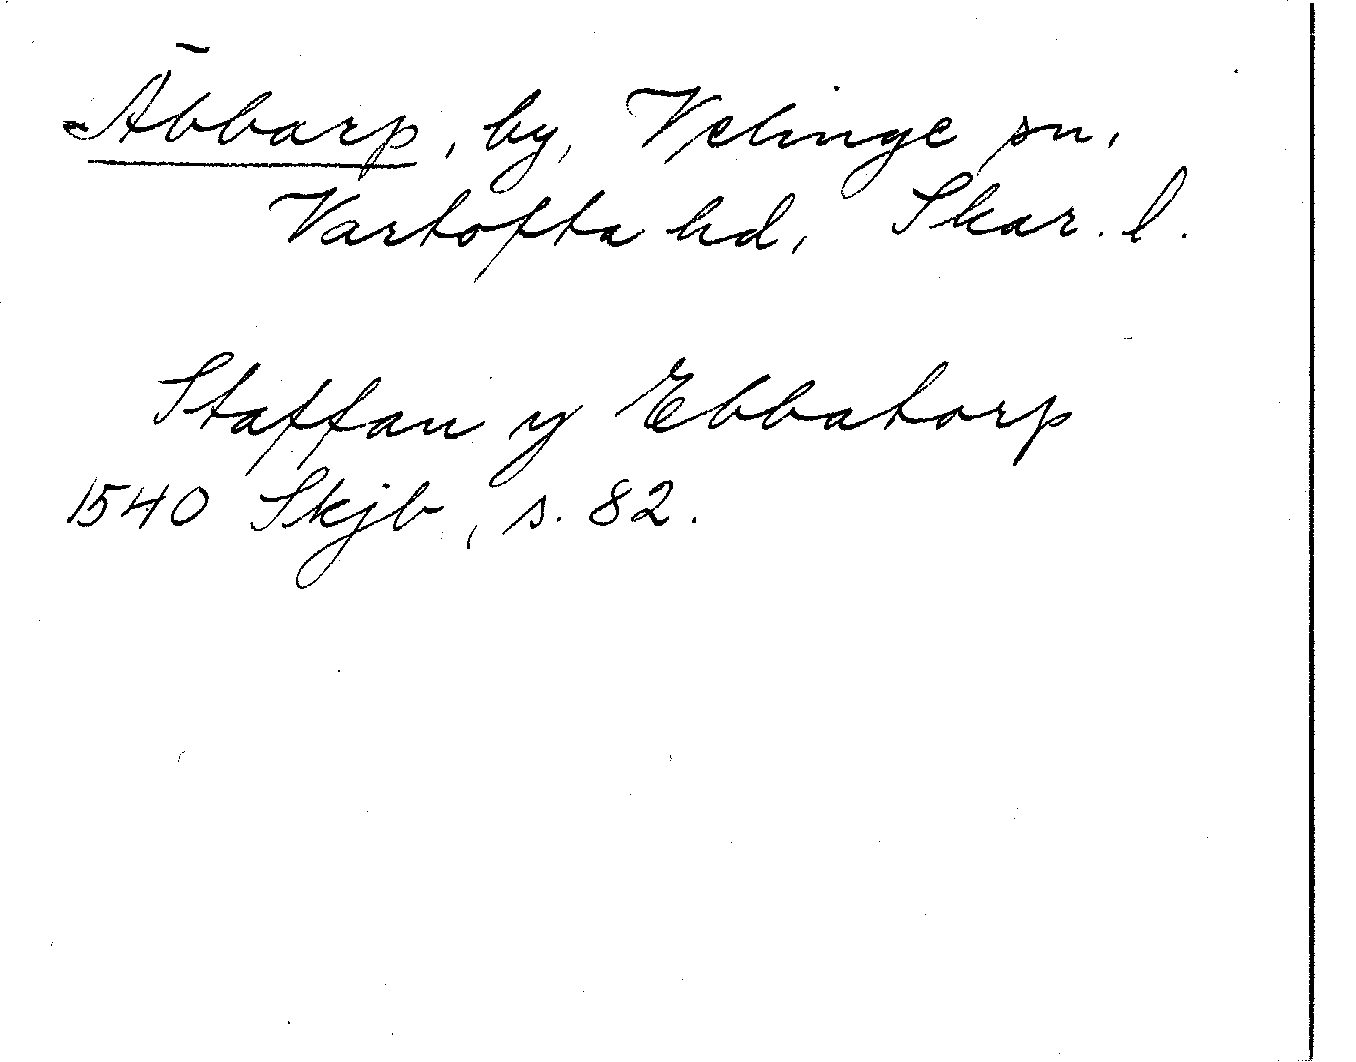 Äbbarp, by, Velinge sn,
Vartofta hd, Skar. l.
Staffan y Ebbatorp
1540 Skjb, s. 82.